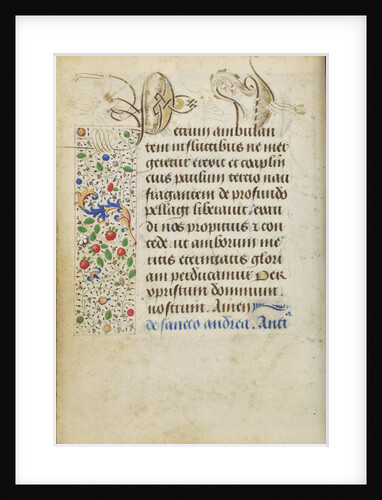 etrum ambulan
tem in fluctibus ne mer
geretur erexit et coapl'm
eius paulum tercio nau
fragantem de profundo
pellagi liberauit exau
di nos propitius et con
cede ut amborum me
ritis eternitatis glori
am perducamur Per
xpristum dominum
nostrum. Amen
de sancto andrea. Anti